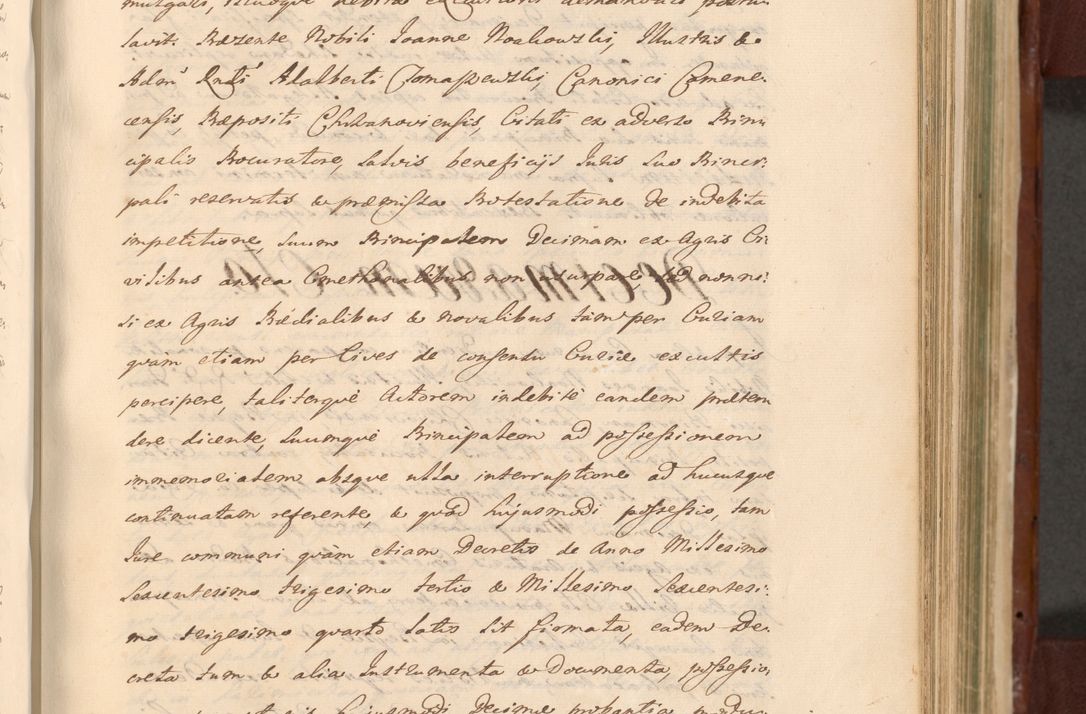 lavit. Præsente Nobili Joanne Noakowski, Illustris &
Adm̃ Rndi Adalberti Tomaszewski, Canonici Camene,
censis, Præpositi Chrzanoviensis, Citati ex adverso Prin,
cipalis Procuratore, salvis beneficijs Juris Suo Princi:
pali reservatis & præmissa Protestatione de indebita
impetitione, Suum Principalem Decimam ex Agris Ci:
vilibus antea Cmethonalibus non usurpare, sed nonni:
si ex Agris Prædialibus & novalibus tam per Curiam
quàm etiam per Cives de consensu Curiæ excultis
percipere, taliterquè Actorem indebitè eandem præten
dere dicente, Suumquè Principalem ad possessionem
immemorialem absque ulla interruptione ad hucusque
continuatam referente, & quòd hujusmodi possessio, tam
Jure communi quàm etiam Decretis de Anno Millesimo
Sexcentesimo trigesimo tertio & Millesimo Sexcentesi:
mo trigesimo quarto satis sit firmata, eadem De,
creta tum & alia Instrumenta & Documenta, possessio,
hujusmodi Decimæ probantia